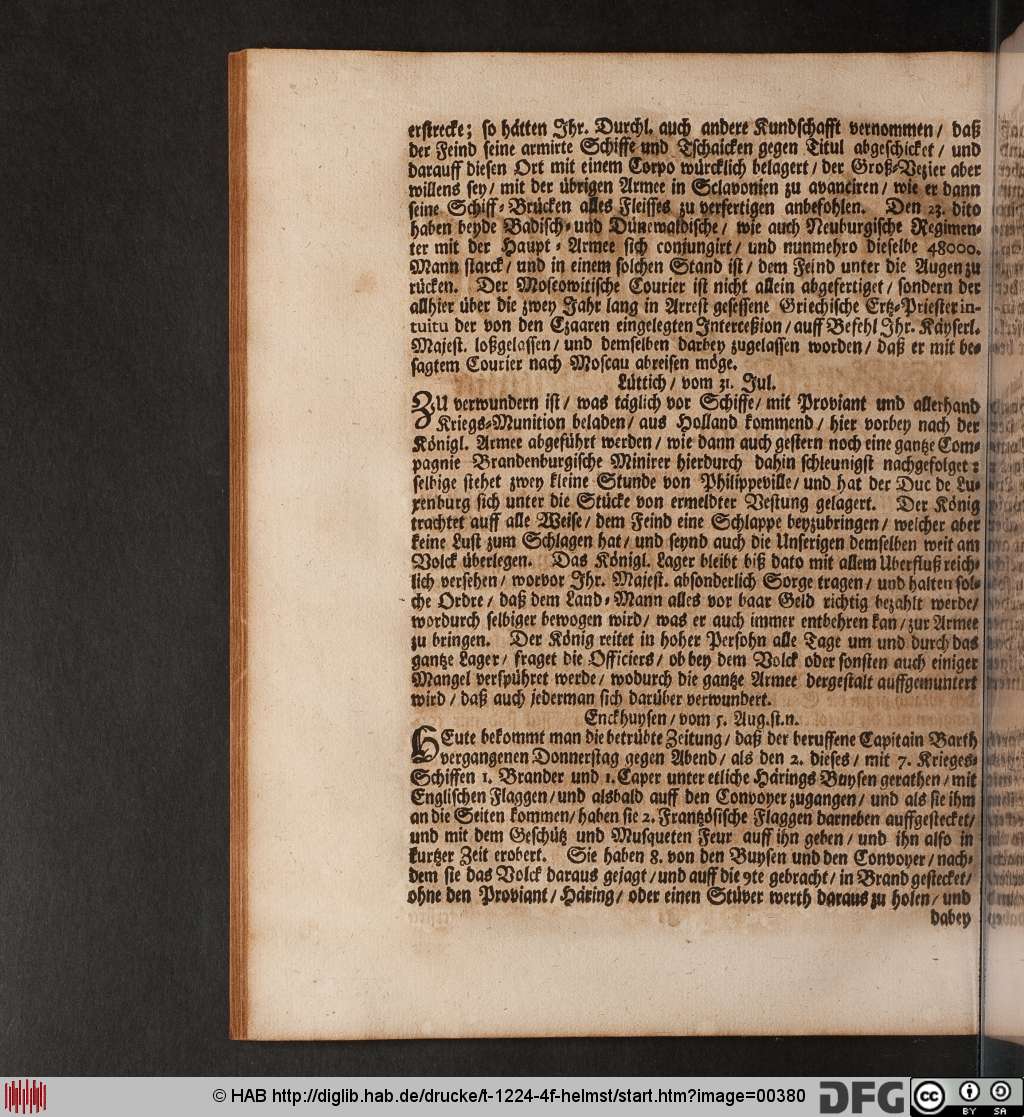 erstrecke; so hätten Ihr. Durchl. auch andere Kundschafft vernommen/ daß
der Feind seine armirte Schiffe und Tschaicken gegen Titul abgeschicket/ und
darauff diesen Ort mit einem Corpo würcklich belagert/ der Groß-Vezier aber
willens sey/ mit der übrigen Armee in Sclavonien zu avanciren/ wie er dann
seine Schiff-Brücken alles Fleisses zu verfertigen anbefohlen. Den 23. dito
haben beyde Badisch- und Dünewaldische/ wie auch Neuburgische Regimen-
ter mit der Haupt-Armee sich conjungirt/ und nunmehro dieselbe 48000.
Mann starck/ und in einem solchen Stand ist/ dem Feind unter die Augen zu
rücken. Der Moscowitische Courier ist nicht allein abgefertiget/ sondern der
allhier über die zwey Jahr lang in Arrest gesessene Griechische Ertz-Priester in-
tuitu der von den Czaaren eingelegten Interceßion/ auff Befehl Ihr. Käyserl.
Majest. loßgelassen/ und demselben darbey zugelassen worden/ daß er mit be-
sagtem Courier nach Moscau abreisen möge.
Lüttich/ vom 31. Jul.
ZU verwundern ist/ was täglich vor Schiffe/ mit Proviant und allerhand
Kriegs-Munition beladen/ aus Holland kommend/ hier vorbey nach der
Königl. Armee abgeführt werden/ wie dann auch gestern noch eine gantze Com-
pagnie Brandenburgische Minirer hierdurch dahin schleunigst nachgefolget:
selbige stehet zwey kleine Stunde von Philippeville/ und hat der Duc de Lu-
xenburg sich unter die Stücke von ermeldter Vestung gelagert. Der König
trachtet auff alle Weise/ dem Feind eine Schlappe beyzubringen/ welcher aber
keine Lust zum Schlagen hat/ und seynd auch die Unserigen demselben weit am
Volck überlegen. Das Königl. Lager bleibt biß dato mit allem Uberfluß reich-
lich versehen/ woevor Ihr. Majest. absonderlich Sorge tragen/ und halten sol-
che Ordre/ daß dem Land-Mann alles vor baar Geld richtig bezahlt werde/
wordurch selbiger bewogen wird/ was er auch immer entbehren kan/ zur Armee
zu bringen. Der König reitet in hoher Persohn alle Tage um und durch das
gantze Lager/ fraget die Officiers/ ob bey dem Volck oder sonsten auch einiger
Mangel verspühret werde/ wodurch die gantze Armee dergestalt auffgemuntert
wird/ daß auch jederman sich darüber verwundert.
Enckhuysen/ vom 5. Aug. st. n.
HEute bekommt man die betrübte Zeitung/ daß der beruffene Capitain Barth
vergangenen Donnerstag gegen Abend/ als den 2. dieses/ mit 7. Krieges-
Schiffen 1. Brander und 1. Caper unter etliche Härings Buysen gerathen/ mit
Englischen Flaggen/ und alsbald auff den Convoyer zugangen/ und als sie ihm
an die Seiten kommen/ haben sie 2. Frantzösische Flaggen darneben auffgestecket/
und mit dem Geschütz und Musqueten Feur auff ihn geben/ und ihn also in
kurtzer Zeit erobert. Sie haben 8. von den Buysen und den Convoyer/ nach-
dem sie das Volck daraus gejagt/ und auff die 9te gebracht/ in Brand gestecket/
ohne den Proviant/ Häring/ oder einen Stüver werth daraus zu holen/ und
dabey
© HAB http://diglib.hab.de/drucke/t-1224-4f-helmst/start.htm?image=00380
DFG
cc BY SA